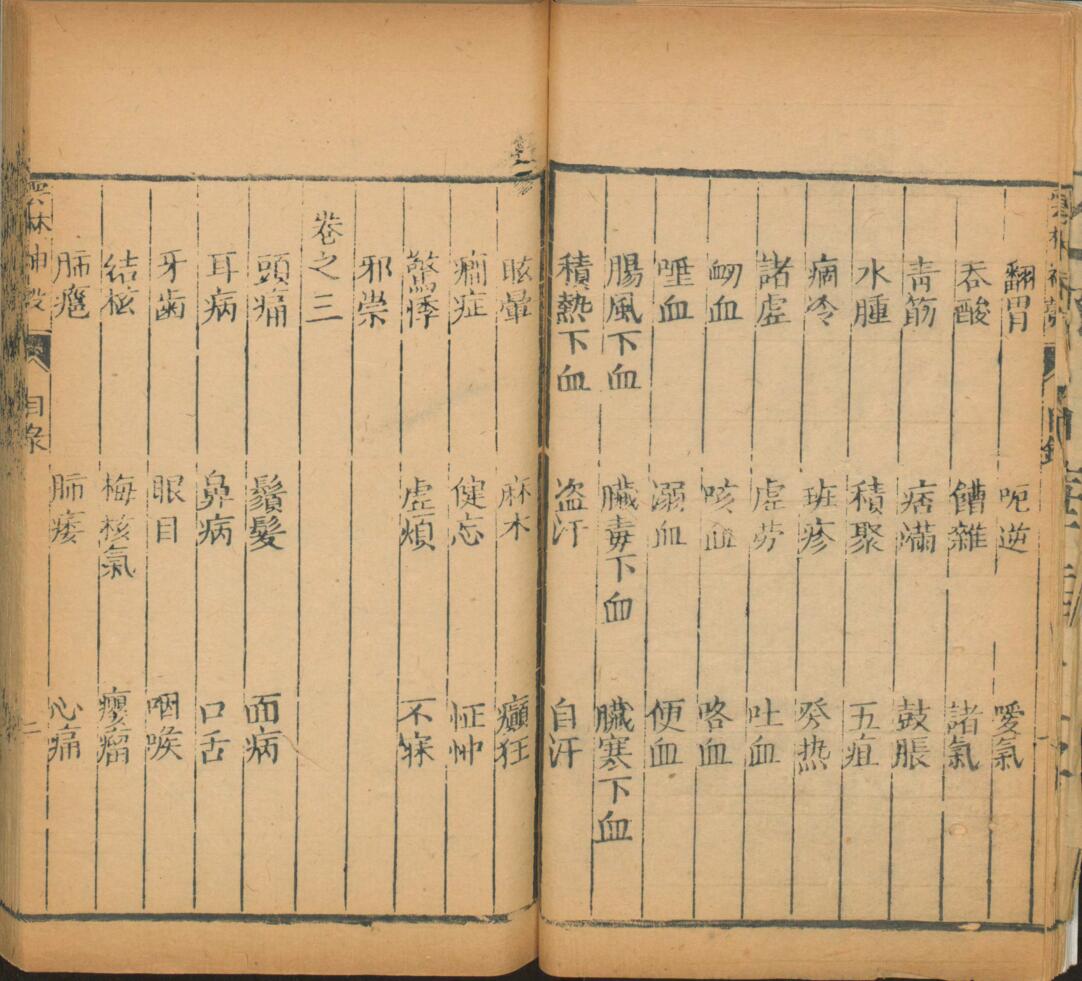 翻胃 呃逆 噯氣
吞酸 饋雜 諸氣
青筋 痞滿 鼓脹
水腫 積聚 五疸
痼冷 斑疹 發热
諸虛 虛劳 吐血
衂血 咳血 咯血
唾血 溺血 便血
腸風下血 臟毒下血 臟寒下血
積熱下血 盗汗 自汗
眩暈 麻木 癲狂
癇症 健忘 怔忡
驚悸 虛煩 不寐
邪祟
卷之三
頭痛 鬚髮 面病
耳病 鼻病 口舌
牙歯 眼目 咽喉
結核 梅核氣 癭瘤
肺癰 肺痿 心痛
雲林神彀 目录 二